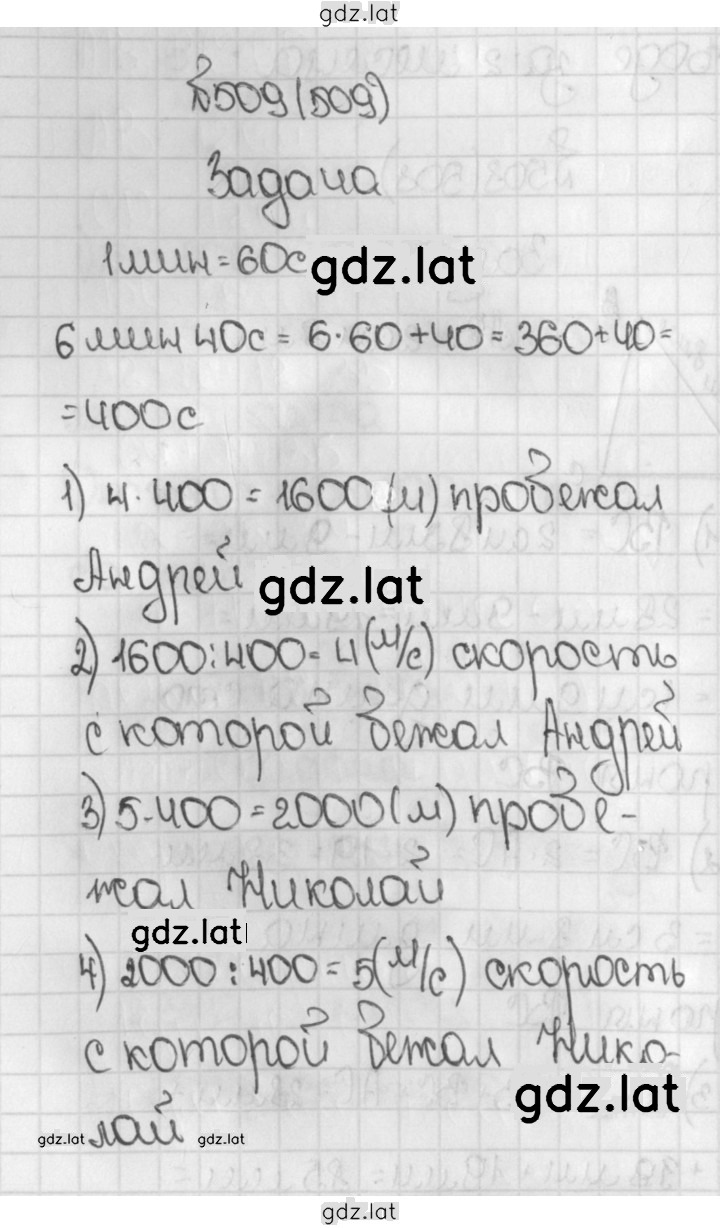 gdz.lat
№509(509)
Задача
1мин=60с
gdz.lat
6 мин 40с = 6·60+40= 360+40=
=400с
1) 4·400=1600(м) пробежал
Андрей
gdz.lat
2) 1600:400=4(м/с) скорость
с которой бежал Андрей
3) 5·400=2000(м) пробе-
жал Николай
gdz.lat
4) 2000:400=5(м/с) скорость
с которой бежал Нико-
gdz.lat
gdz.lat лай gdz.lat
gdz.lat